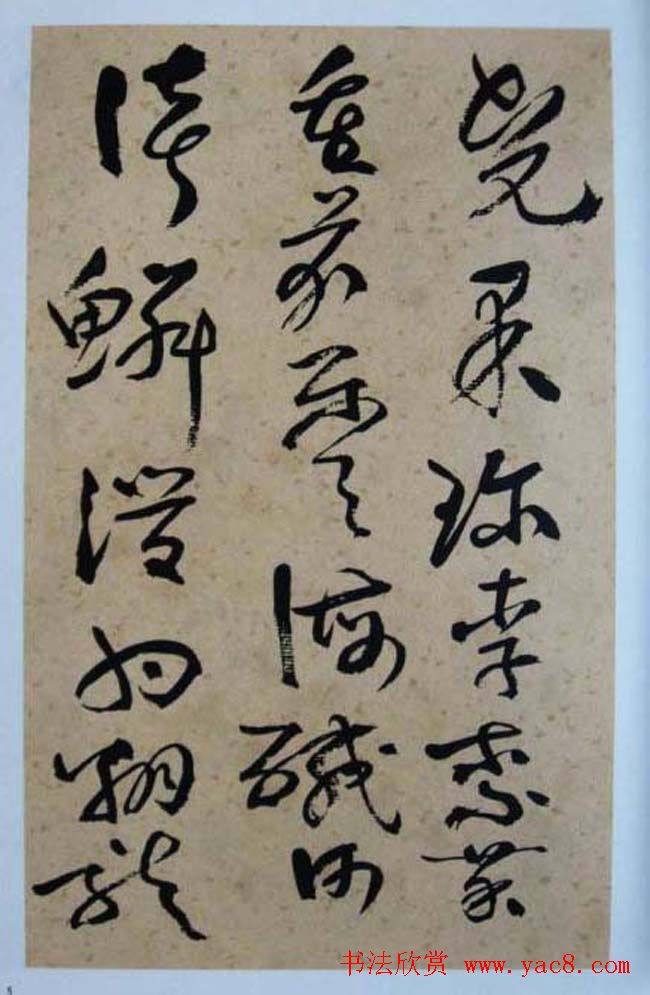 光果珍李柰菜
重芥薑海鹹河
淡鱗潛羽翔龍
书法欣赏 www.yac8.com